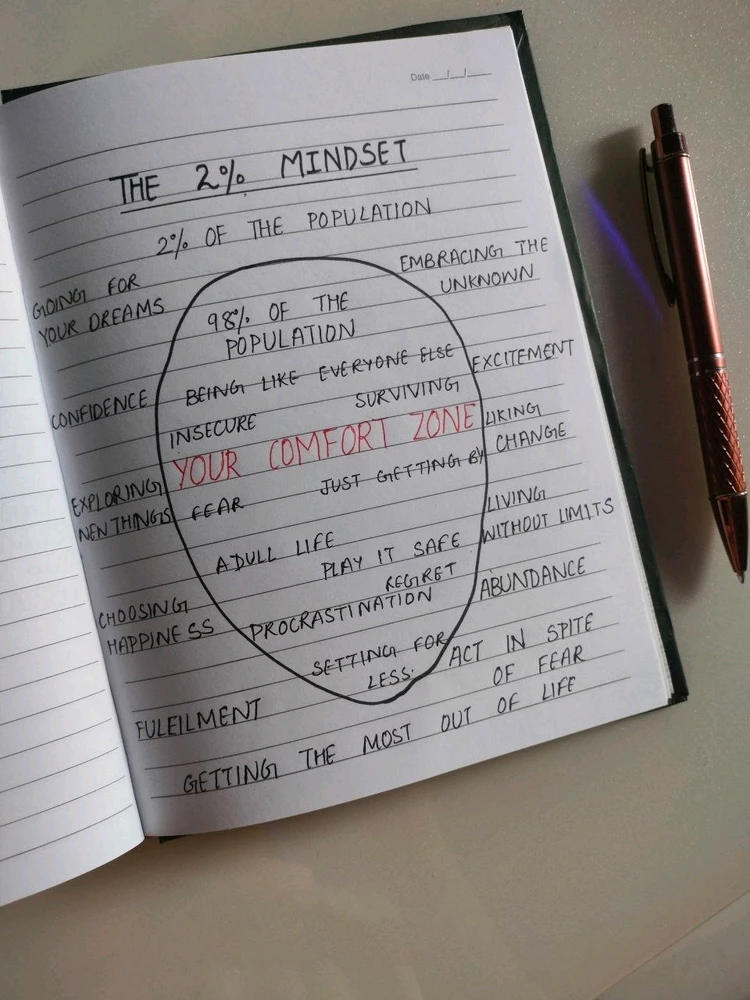 Date __/__/__
THE 2% MINDSET
2% OF THE POPULATION
GOING FOR
YOUR DREAMS
EMBRACING THE
UNKNOWN
98% OF THE
POPULATION
BEING LIKE EVERYONE ELSE
EXCITEMENT
CONFIDENCE
SURVIVING
INSECURE
LIKING
CHANGE
YOUR COMFORT ZONE
EXPLORING
NEW THINGS
JUST GETTING BY
FEAR
LIVING
WITHOUT LIMITS
ADULL LIFE
PLAY IT SAFE
REGRET
ABUNDANCE
CHOOSING
HAPPINESS
PROCRASTINATION
SETTING FOR
LESS.
ACT IN SPITE
OF FEAR
FULEILMENT
GETTING THE MOST OUT OF LIFE